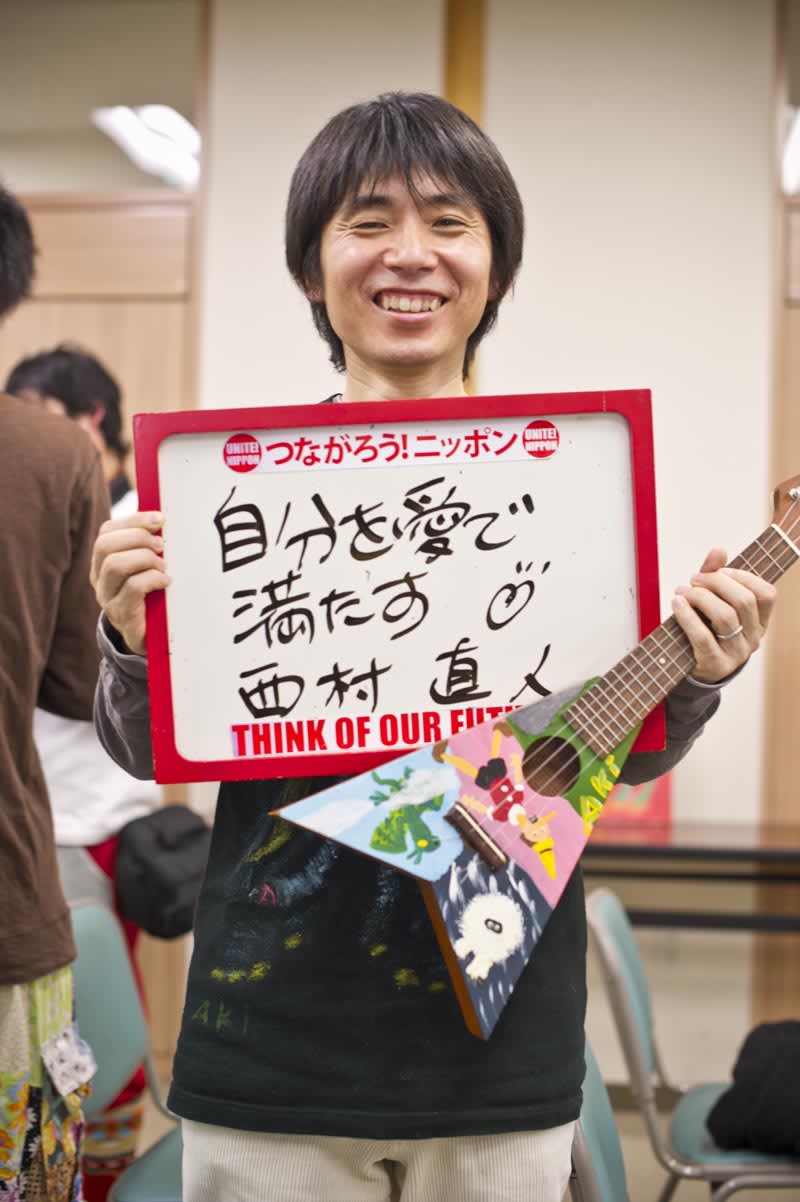 UNITE! NIPPON つながろう!ニッポン UNITE! NIPPON
自分を愛で
満たす
西村 直人
THINK OF OUR FUTU
AKI
AKI